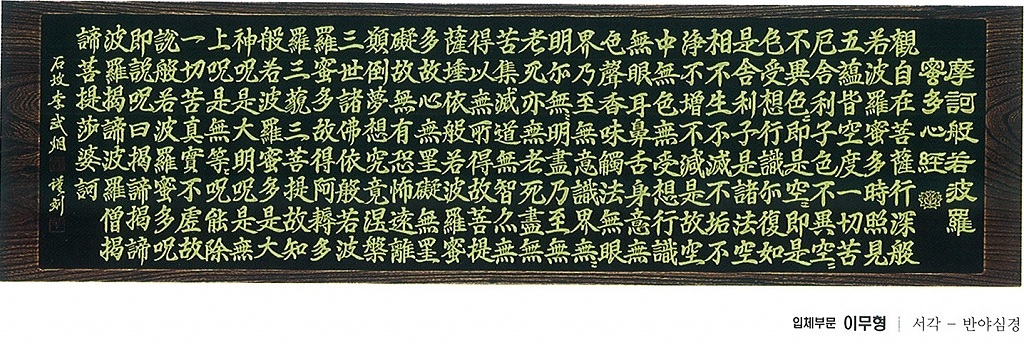 摩訶般若波羅
蜜多心經
觀自在菩薩行深般
若波羅蜜多時照見
五蘊皆空度一切苦
厄舍利子色不異空〻
不異色〻即是空〻即是
色受想行識尒復如
是舍利子是諸法空
相不生不滅不垢不
淨不增不減是故空
中無色無受想行識
無眼耳鼻舌身意無〻
色聲香味觸法無眼
界乃至無意識界無〻
明尒無〻明盡乃至無
老死亦無老死盡無
苦集滅道無智尒無
得以無所得故菩提
薩埵依般若波羅蜜
多故心無罣礙無罣
礙故無有恐怖遠離
顚倒夢想究竟涅槃
三世諸佛依般若波
羅蜜多故得阿耨多
羅三藐三菩提故知
般若波羅蜜多是大
神呪是大明呪是無
上呪是無等〻呪能除
一切苦真實不虛故
說般若波羅蜜多呪
即說呪曰揭諦揭諦
波羅揭諦波羅僧揭
諦菩提莎婆訶
石坡 李武炯 謹刻
입체부문 이무형 | 서각 - 반야심경